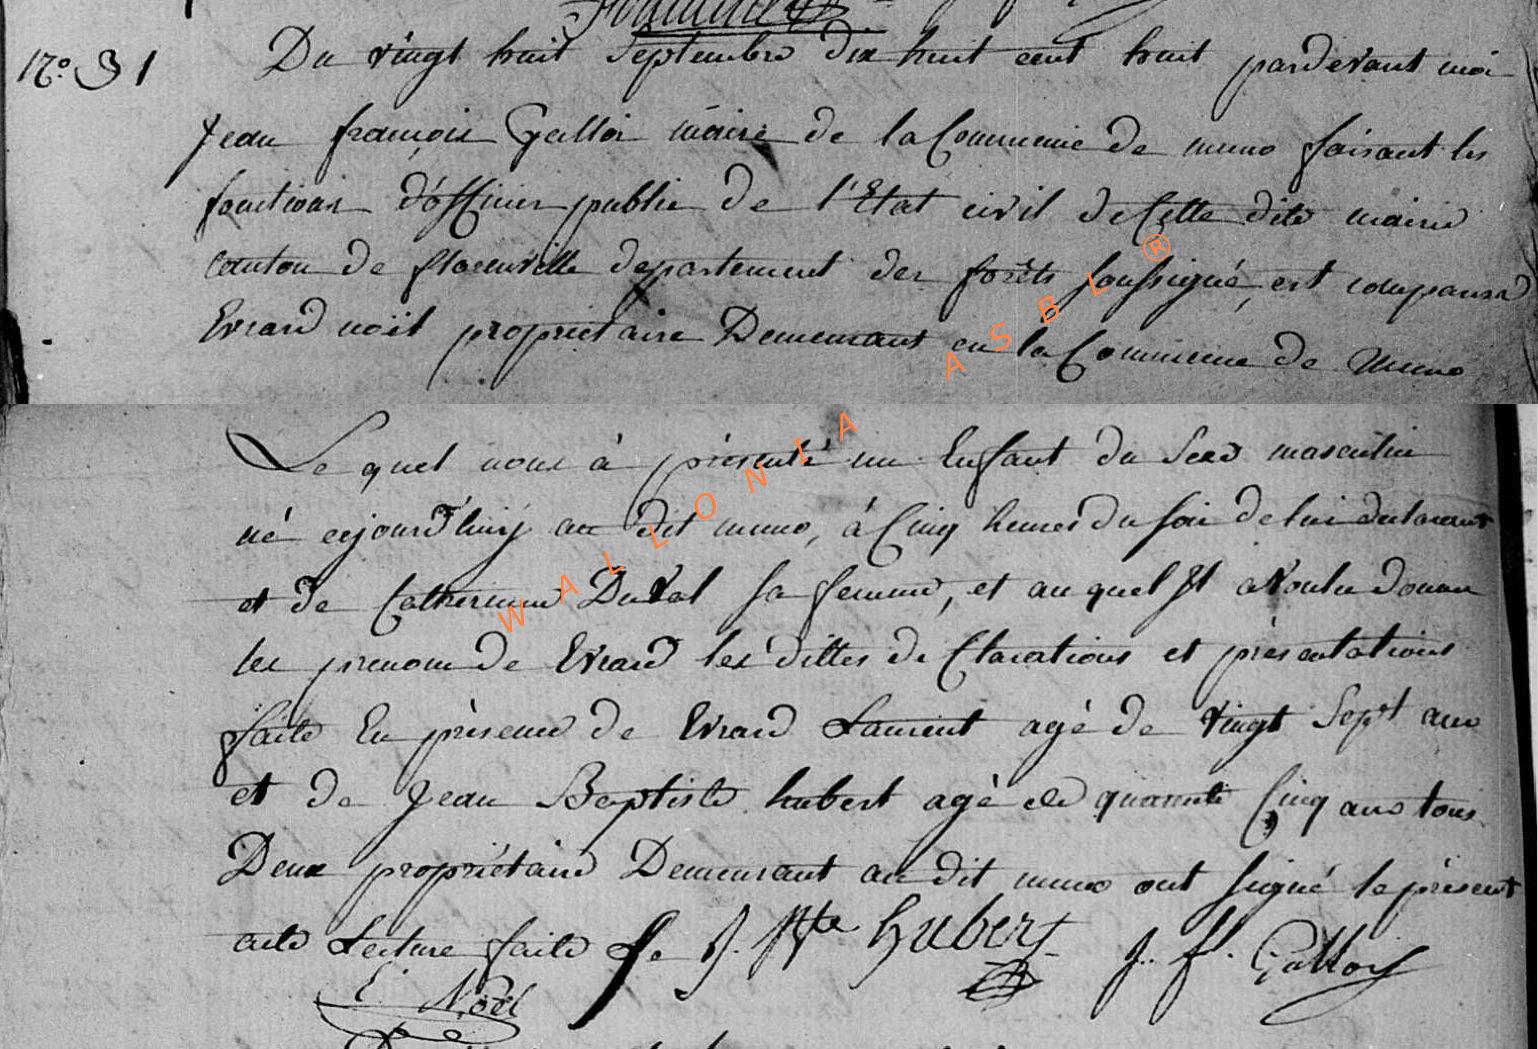 N.° 31
Du vingt huit Septembre dix huit cent huit pardevant moi
Jean françois Gallois maire de la Commune de muno faisant les
fonctions d'officier public de l'Etat civil de Cette dite mairie
canton de florenville departement des forêts soussigné, est comparu
Evrard noël proprietaire Demeurant en la Commune de Muno
Le quel nous à présenté un Enfant du Sexe masculin
né cejourd'huij au dit muno, à Cinq heures du soir de lui declarant
et de Catherinne Duval sa femme, et au quel Il a voulu donner
les prenom de Evrard les dittes de Clarations et présentations
faite En présence de Evrard Laurent agé de vingt Sept ans
et de Jean Baptiste hubert agé de quarante Cinq ans tous
Deux propriétaire Demeurant au dit muno ont signé le présent
acte Lecture faite J. Bte hubert J. f. Gallois
E. Noël
WALLONIA ASBL ®